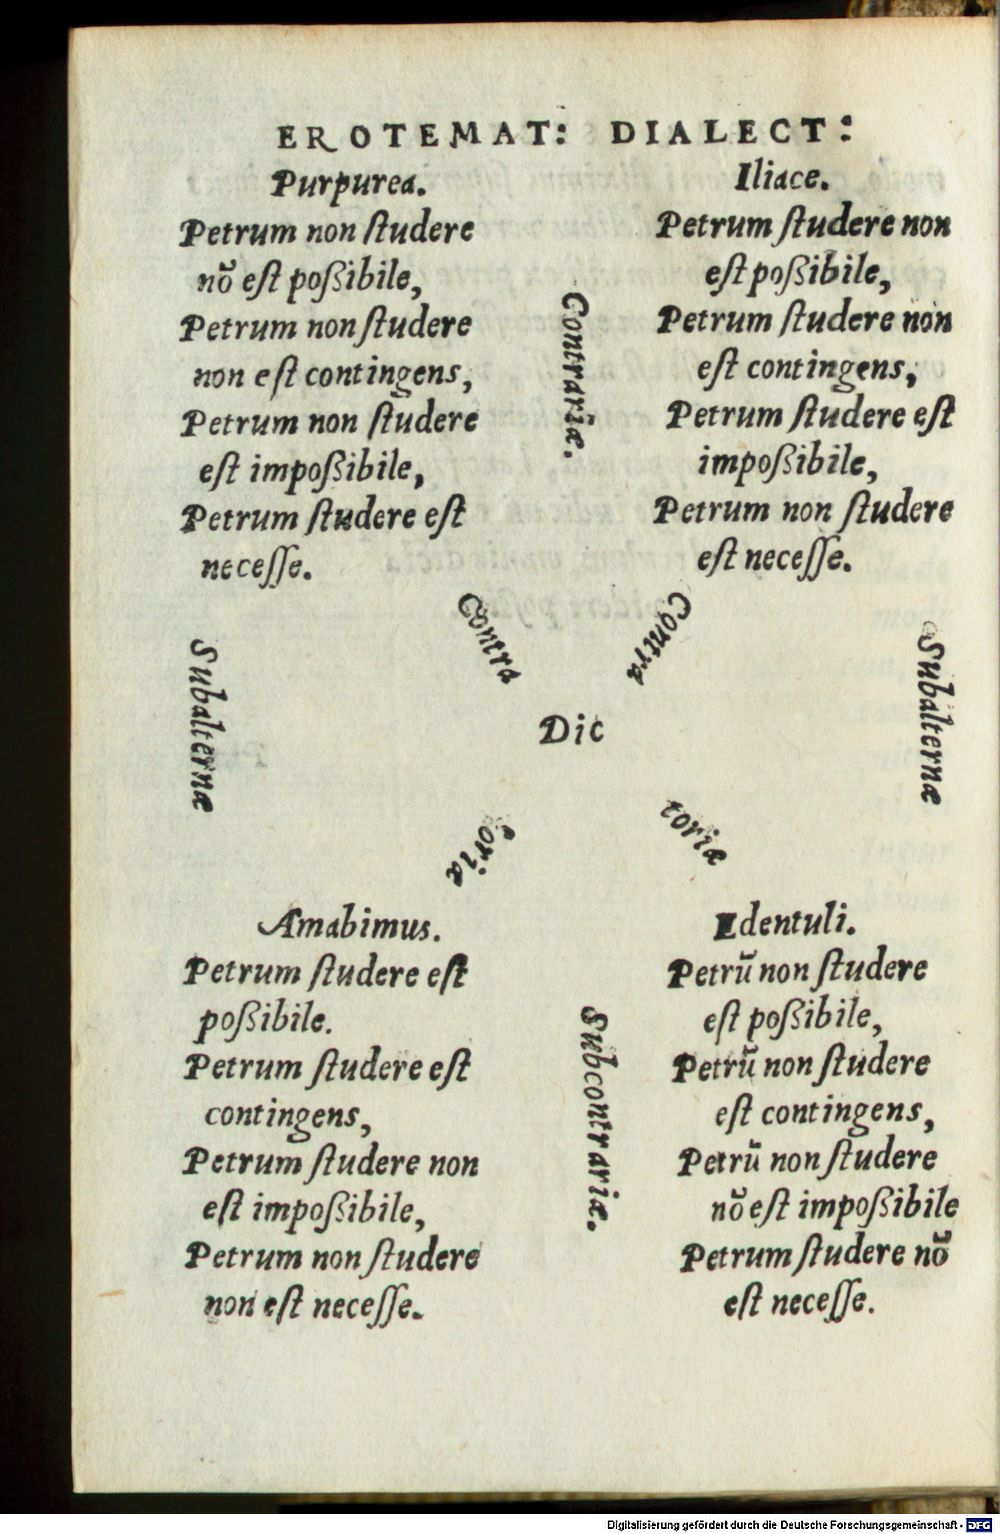 EROTEMAT: DIALECT:
Purpurea.
Petrum non ſtudere
nõ eſt poßibile,
Petrum non ſtudere
non eſt contingens,
Petrum non ſtudere
eſt impoßibile,
Petrum ſtudere eſt
neceſſe.
Contrariæ.
Iliace.
Petrum ſtudere non
eſt poßibile,
Petrum ſtudere non
eſt contingens,
Petrum ſtudere eſt
impoßibile,
Petrum non ſtudere
eſt neceſſe.
Subalternæ
Contra
Contra
Dic
toriæ
toriæ
Subalternæ
Amabimus.
Petrum ſtudere eſt
poßibile.
Petrum ſtudere eſt
contingens,
Petrum ſtudere non
eſt impoßibile,
Petrum non ſtudere
non eſt neceſſe.
Subcontrariæ.
Edentuli.
Petrũ non ſtudere
eſt poßibile,
Petrũ non ſtudere
eſt contingens,
Petrũ non ſtudere
nõ eſt impoßibile
Petrum ſtudere nõ
eſt neceſſe.
Digitalisierung gefördert durch die Deutsche Forschungsgemeinschaft - DFG